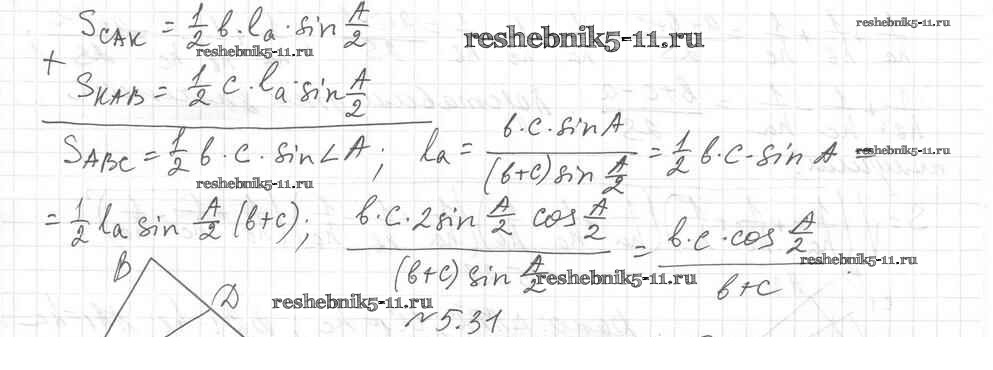 S_CAK = 1/2 b·l_a·sin A/2
reshebnik5-11.ru
reshebnik5-11.ru
reshebnik5-11.ru
+
S_KAB = 1/2 c·l_a·sin A/2
S_ABC = 1/2 b·c·sin∠A; l_a = b·c·sinA / (b+c) sin A/2 = 1/2 b·c·sin A =
reshebnik5-11.ru
reshebnik5-11.ru
= 1/2 l_a sin A/2 (b+c); b·c·2sin A/2 cos A/2 / (b+c) sin A/2 = b·c·cos A/2 / b+c
reshebnik5-11.ru
reshebnik5-11.ru
reshebnik5-11.ru
B
D
№5.31